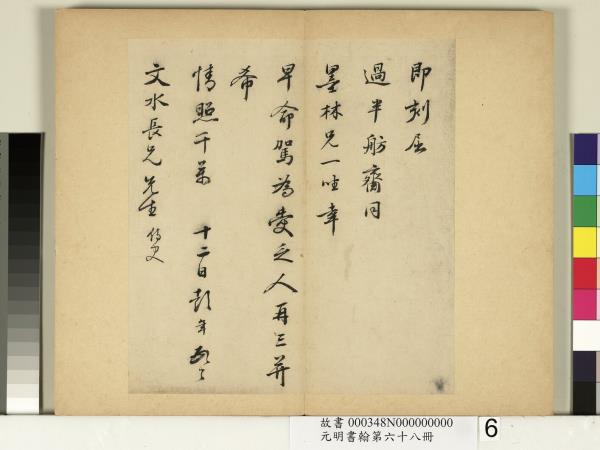 即刻屈
過半舫齋同
墨林兄一坐幸
早命駕為愛乏人再三并
希
情照千萬 十二日彭年頓首
文水長兄先生 侍史
故書 000348N000000000
元明書翰第六十八冊
6